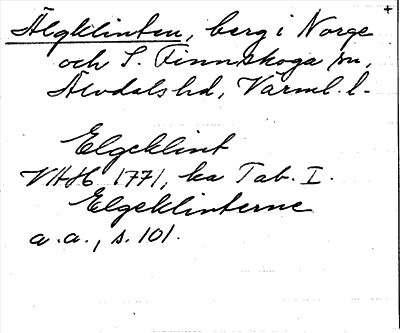 Älgklinten, berg i Norge +
och S. Finnskoga sn,
Älvdals hd, Värml. l.
Elgeklint
VAH 1771, ka Tab. I.
Elgeklinterne
a.a., s. 101.